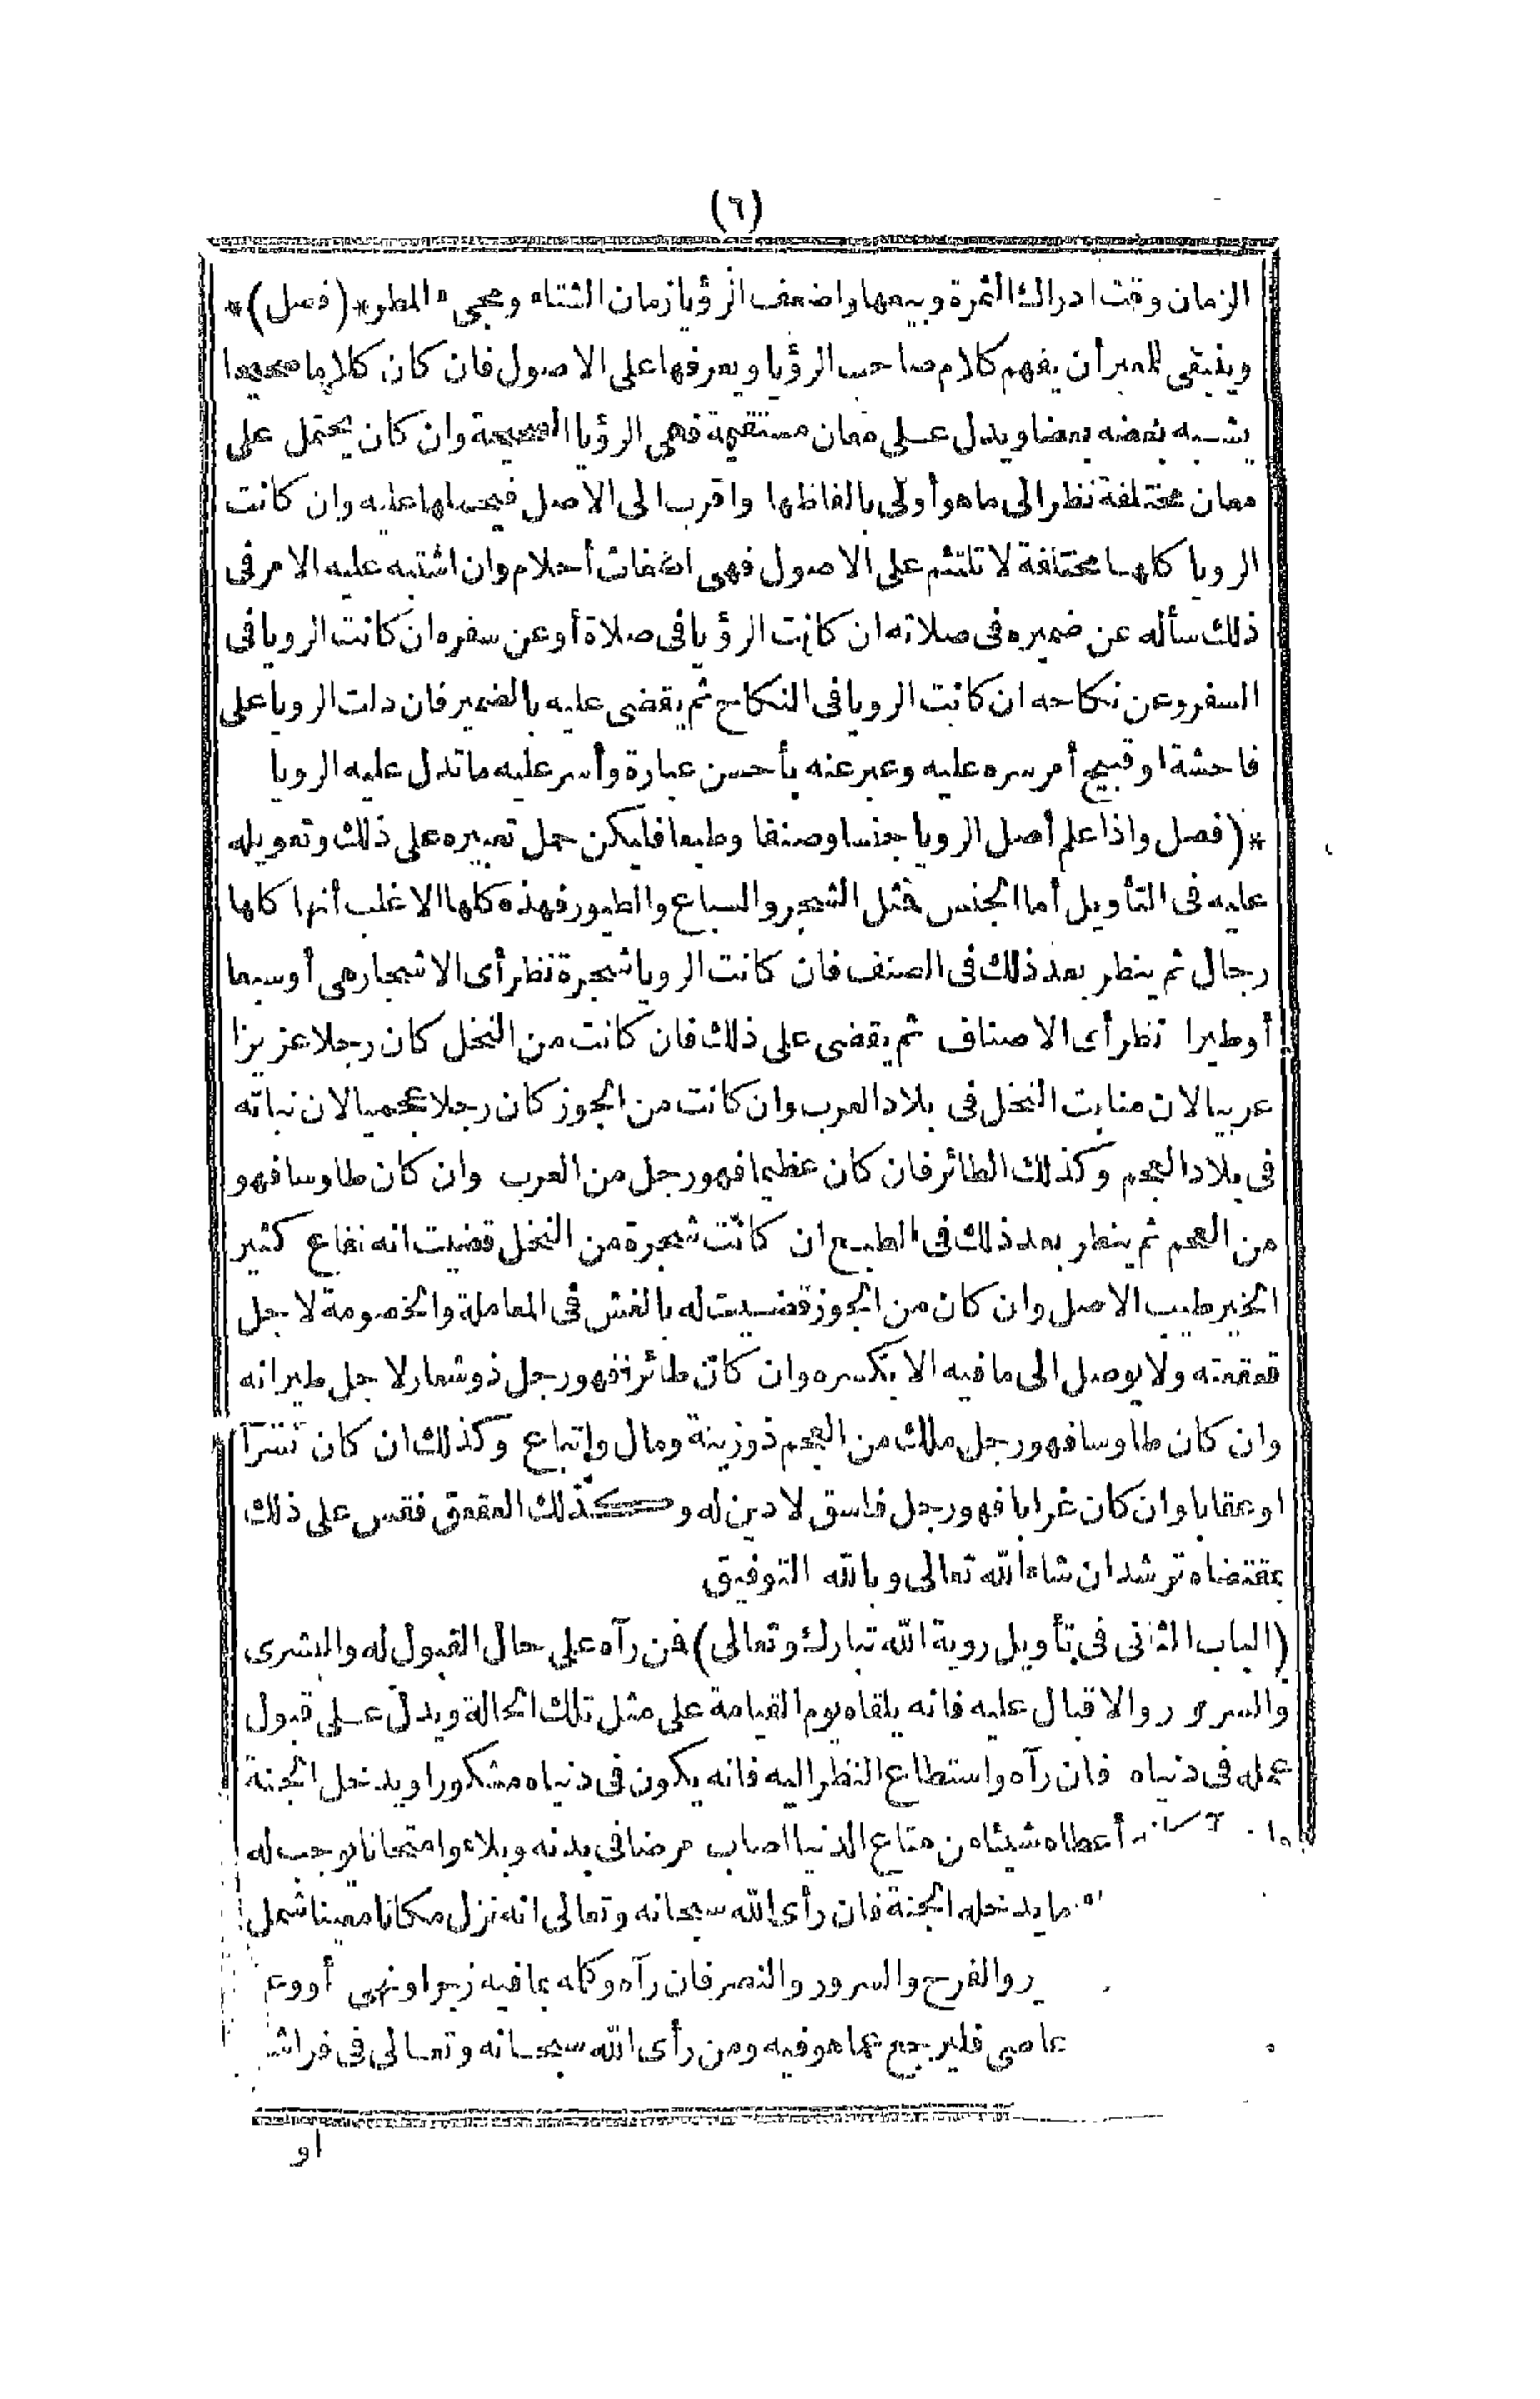 (٦)
الزمان وقت ادراك الثمرة وبيعها واضعف الرؤيا زمان الشتاء ومجىء المطر *(فصل)*
وينبغى للمعبر أن يفهم كلام صاحب الرؤيا ويعرفها على الاصول فان كان كلاما صحيحا
يشبه بعضه بعضا ويدل على معان مستقيمة فهى الرؤيا الصحيحة وان كان يحتمل على
معان مختلفة نظر الى ما هو أولى بالفاظها واقرب الى الاصل فيحملها عليه وان كانت
الرويا كلها مختلفة لا تلتئم على الاصول فهى اضغاث أحلام وان اشتبه عليه الامر فى
ذلك سأله عن ضميره فى صلاته ان كانت الرؤيا فى صلاة أو عن سفره ان كانت الرويا فى
السفر وعن نكاحه ان كانت الرويا فى النكاح ثم يقضى عليه بالضمير فان دلت الرويا على
فاحشة او قبيح أمر سره عليه وعبر عنه بأحسن عبارة وأسر عليه ما تدل عليه الرويا
*(فصل واذا علم أصل الرويا جنسا وصنفا وطبعا فليكن حمل تعبيره على ذلك وتعويله
عليه فى التأويل أما الجنس فمثل الشجر والسباع والطيور فهذه كلها الاغلب أنها كلها
رجال ثم ينظر بعد ذلك فى الصنف فان كانت الرويا شجرة نظر أى الاشجار هى أو سبعا
أو طيرا نظر أى الاصناف ثم يقضى على ذلك فان كانت من النخل كان رجلا عزيزا
عربيا لان منابت النخل فى بلاد العرب وان كانت من الجوز كان رجلا عجميا لان نباته
فى بلاد العجم وكذلك الطائر فان كان عظيما فهو رجل من العرب وان كان طاوسا فهو
من العجم ثم ينظر بعد ذلك فى الطبع ان كانت شجرة من النخل قضيت انه نفاع كثير
الخير طيب الاصل وان كان من الجوز قضيت له بالغش فى المعاملة والخصومة لاجل
قعقعته ولا يوصل الى ما فيه الا بكسره وان كان طائرا فهو رجل ذو شعار لاجل طيرانه
وان كان طاوسا فهو رجل ملك من العجم ذو زينة ومال وإتباع وكذلك ان كان نسرا
او عقابا وان كان غرابا فهو رجل فاسق لا دين له وكذلك العقعق فقس على ذلك
بمقتضاه ترشد ان شاء الله تعالى وبالله التوفيق
(الباب الثانى فى تأويل روية الله تبارك وتعالى) فمن رآه على حال القبول له والبشرى
والسرور والاقبال عليه فانه يلقاه يوم القيامة على مثل تلك الحالة ويدل على قبول
عمله فى دنياه فان رآه واستطاع النظر اليه فانه يكون فى دنياه مشكورا ويدخل الجنة
أعطاه شيئا من متاع الدنيا اصاب مرضا فى بدنه وبلاء وامتحانا يوجب له
ما يدخله الجنة فان رأى الله سبحانه وتعالى انه نزل مكانا معينا شمل
والفرح والسرور والنصر فان رآه وكله بما فيه زجر او نهى أو وع
عاصى فليرجع عما هو فيه ومن رأى الله سبحانه وتعالى فى فراش
او